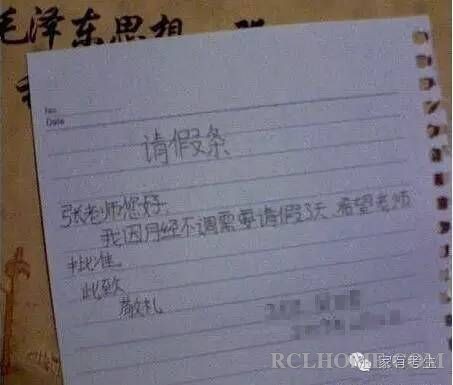 毛泽东思想
No.
Date
请假条
张老师您好:
我因月经不调需要请假3天、希望老师
批准。
此致
敬礼
家有考生
RCLHOME.COM